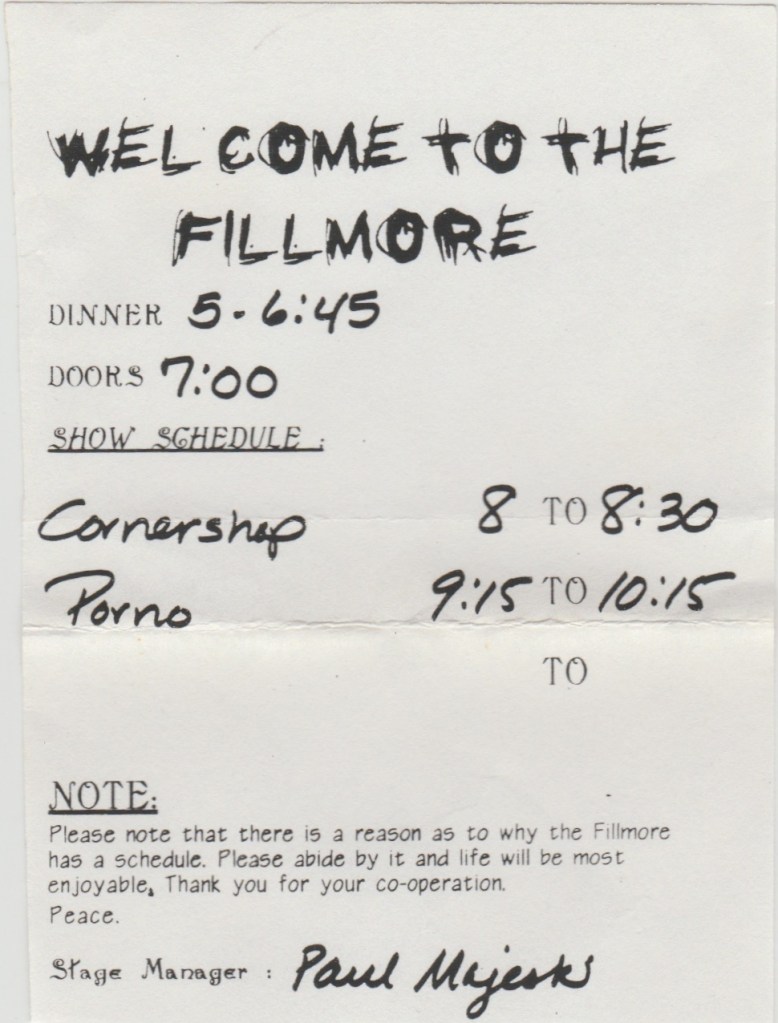 WELCOME TO THE
FILLMORE
DINNER 5-6:45
DOORS 7:00
SHOW SCHEDULE :
Cornershop 8 TO 8:30
Porno 9:15 TO 10:15
TO
NOTE:
Please note that there is a reason as to why the Fillmore
has a schedule. Please abide by it and life will be most
enjoyable. Thank you for your co-operation.
Peace.
Stage Manager : Paul Majeski